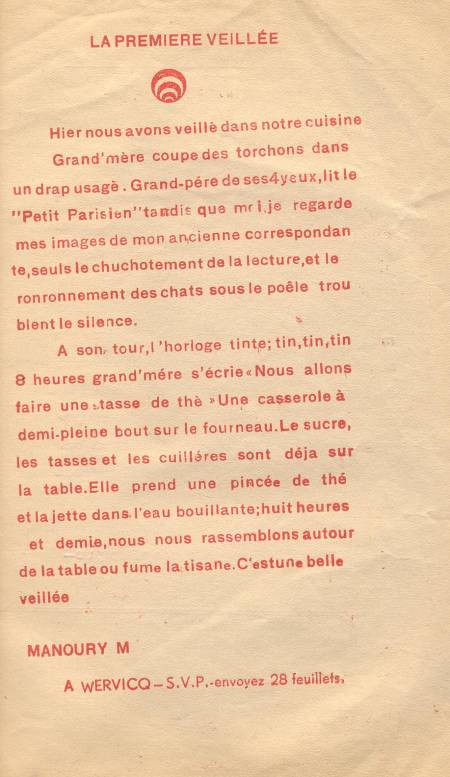 LA PREMIERE VEILLÉE
Hier nous avons veillè dans notre cuisine
Grand'mère coupe des torchons dans
un drap usagè. Grand-pére de ses4yeux,lit le
"Petit Parisien"tandis que moi,je regarde
mes images de mon ancienne correspondan
te,seuls le chuchotement de la lecture,et le
ronronnement des chats sous le poêle trou
blent le silence.
A son, tour,l'horloge tinte; tin,tin,tin
8 heures grand'mére s'écrie«Nous allons
faire une tasse de thè »Une casserole à
demi-pleine bout sur le fourneau.Le sucre,
les tasses et les cuilléres sont déja sur
la table.Elle prend une pincée de thé
et la jette dans l'eau bouillante;huit heures
et demie,nous nous rassemblons autour
de la table ou fume la tisane.C'estune belle
veillée
MANOURY M
A WERVICQ-S.V.P.-envoyez 28 feuillets.